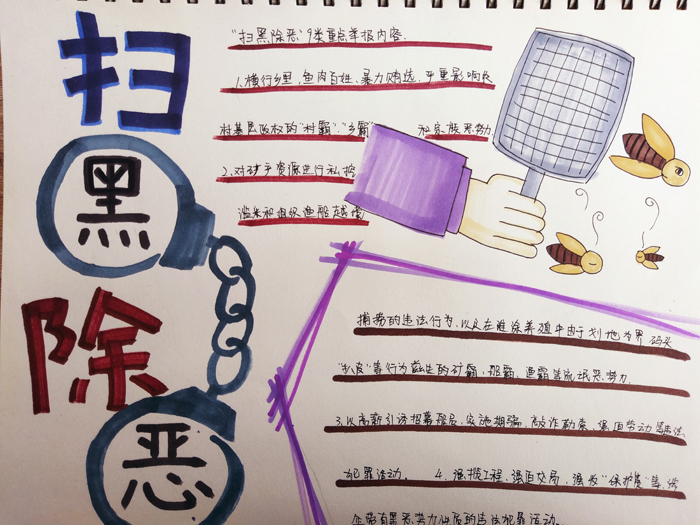 扫
黑
除
恶
"扫黑除恶"9类重点举报内容:
1.横行乡里,鱼肉百姓、暴力贿选,严重影响农
村基层政权的"村霸"."乡霸" 和家族恶势力.
2.对矿产资源进行私挖
滥采和组织渔船越境
捕捞的违法行为,以及在滩涂养殖中由于划地为界码头
"扒皮"等行为滋生的矿霸、
霸、渔霸等流氓恶势力.
3.以高薪引诱招募
实施拥骗,敲诈勒索、强迫劳动等违法
犯罪活动. 4.强揽工程,强迫交易,强收"保护费"等,
带有黑恶势力性质的违法犯罪活动.